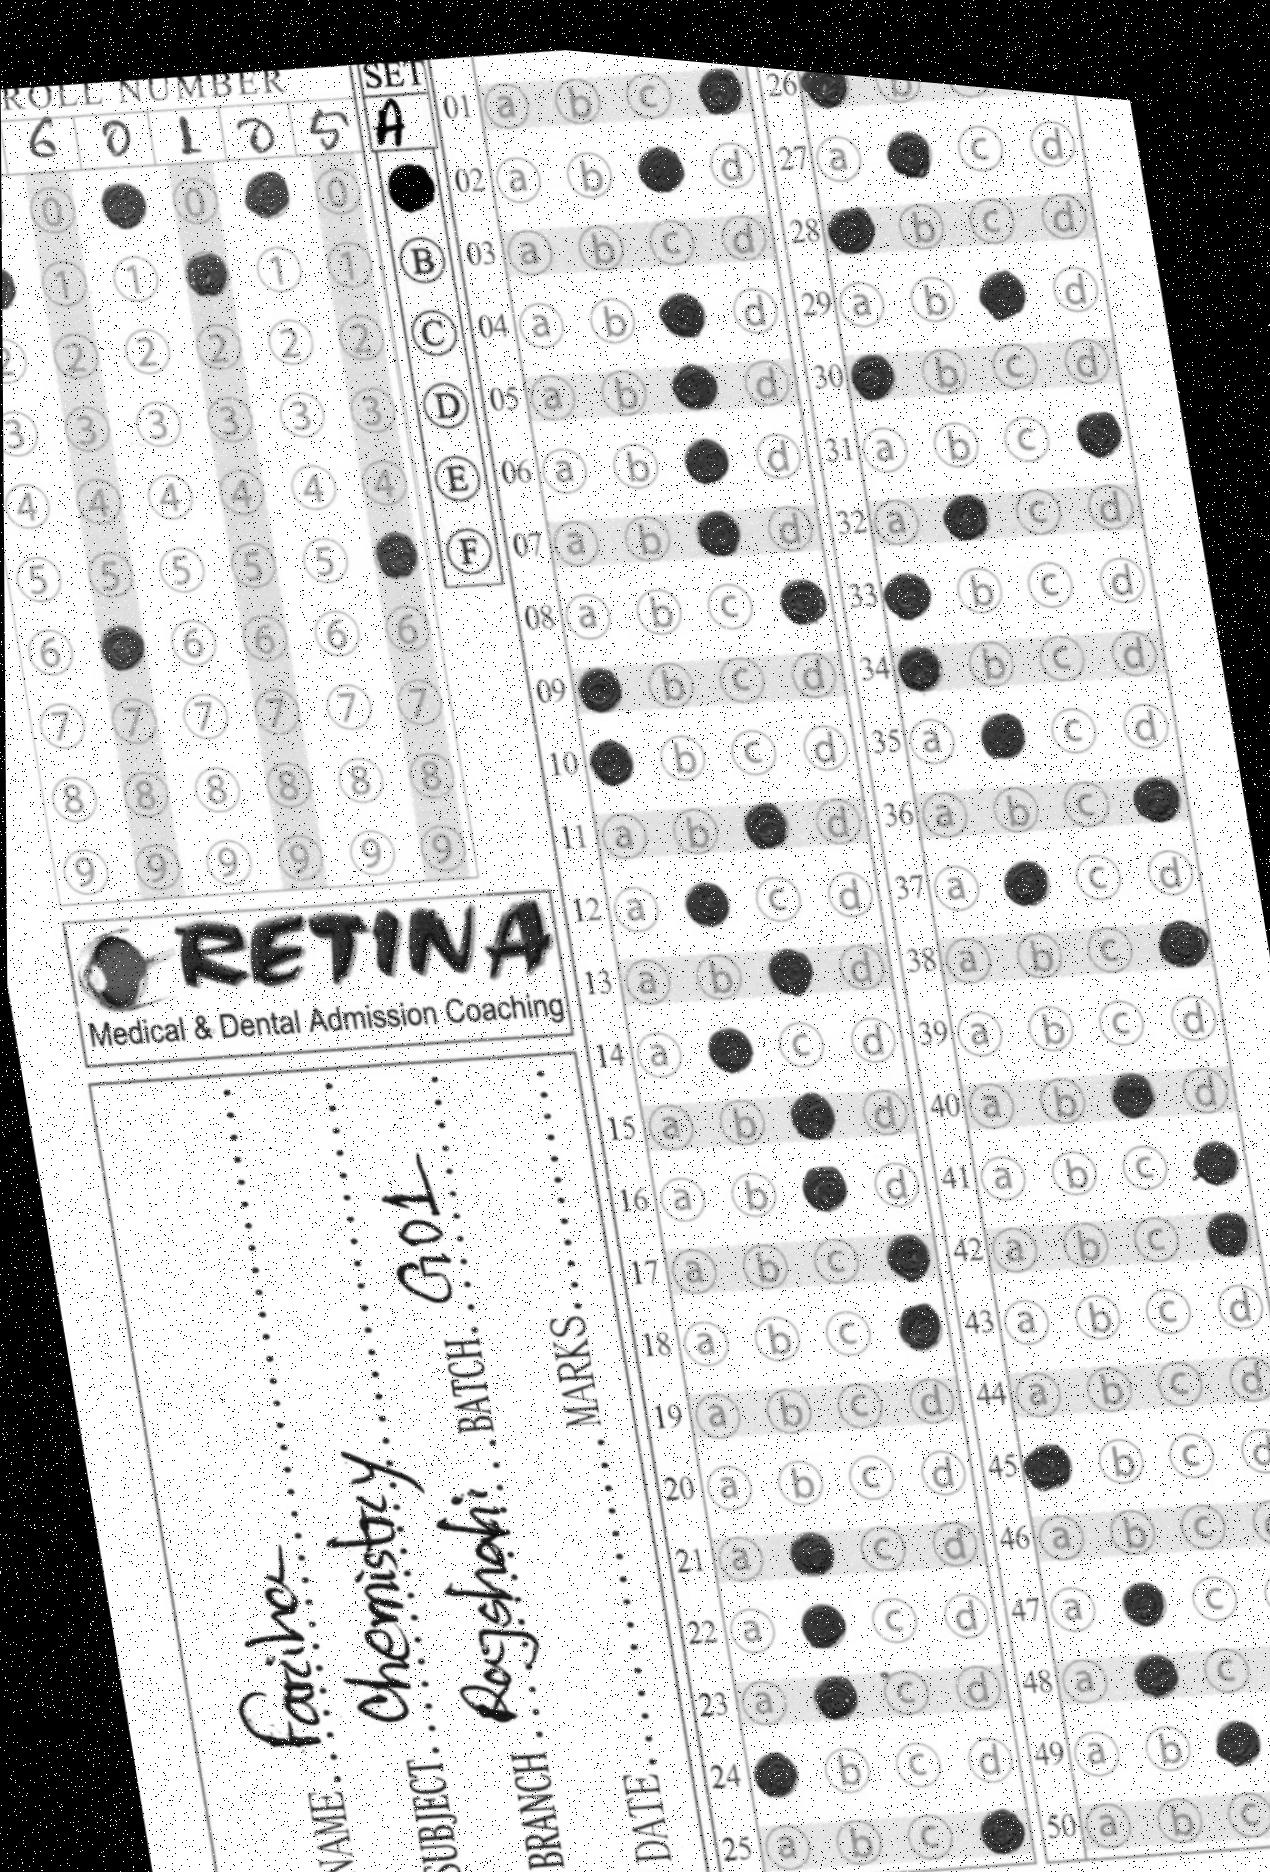 ROLL NUMBER
6 0 1 0 5
0 0 0
1 1 1 1
2 2 2 2 2 2
3 3 3 3 3 3
4 4 4 4 4 4
5 5 5 5 5
6 6 6 6 6
7 7 7 7 7 7
8 8 8 8 8 8
9 9 9 9 9 9
SET
A
B
C
D
E
F
RETINA
Medical & Dental Admission Coaching
NAME. Fariha
SUBJECT. Chemistry
BRANCH. Rajshahi BATCH. G01
DATE. MARKS
01 a b c
02 a b d
03 a b c d
04 a b d
05 a b d
06 a b d
07 a b d
08 a b c
09 b c d
10 b c d
11 a b d
12 a c d
13 a b d
14 a c d
15 a b d
16 a b d
17 a b c
18 a b c
19 a b c d
20 a b c d
21 a c d
22 a c d
23 a c d
24 b c d
25 a b c
26 b
27 a c d
28 b c d
29 a b d
30 b c d
31 a b c
32 a c d
33 b c d
34 b c d
35 a c d
36 a b c
37 a c d
38 a b c
39 a b c d
40 a b d
41 a b c
42 a b c
43 a b c d
44 a b c d
45 b c d
46 a b c
47 a c
48 a c
49 a b
50 a b c